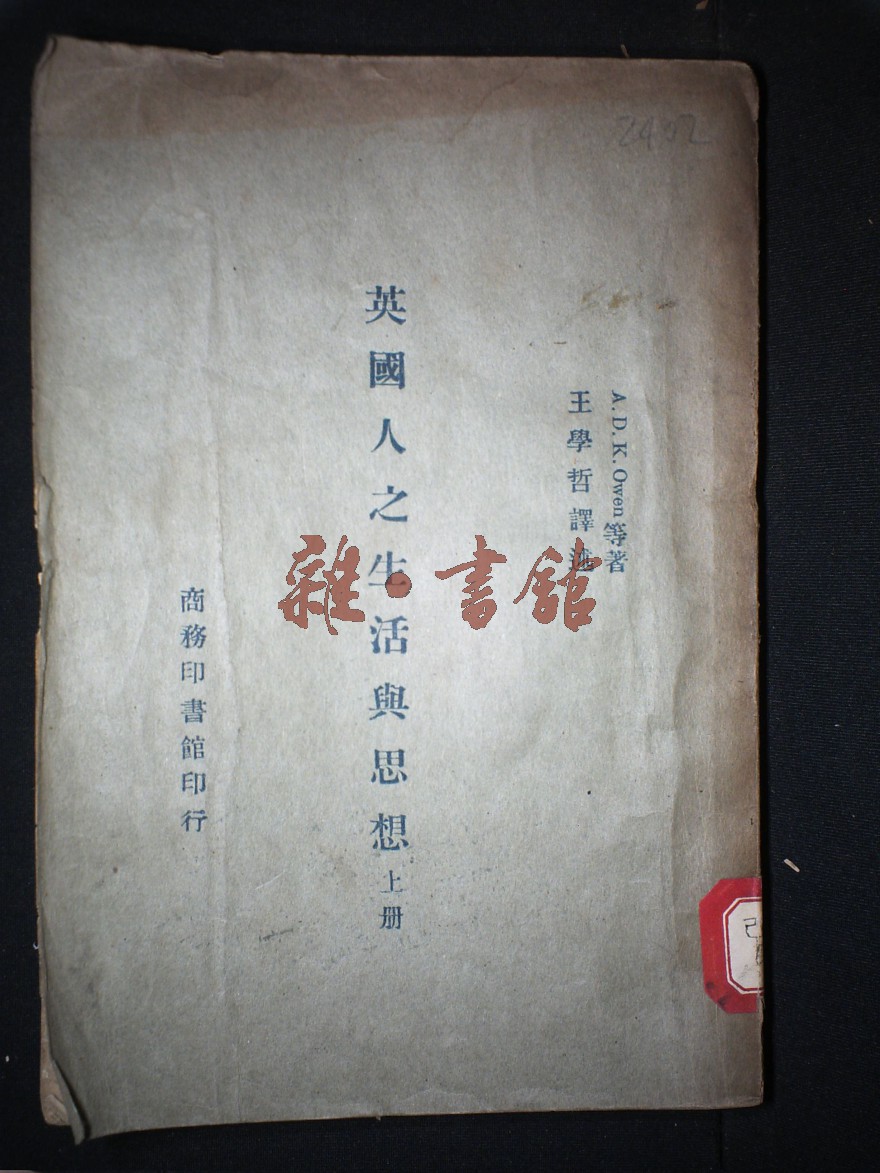 2402
A. D. K. Owen 等著
王學哲譯述
英國人之生活與思想 上册
商務印書館印行
雜·書館